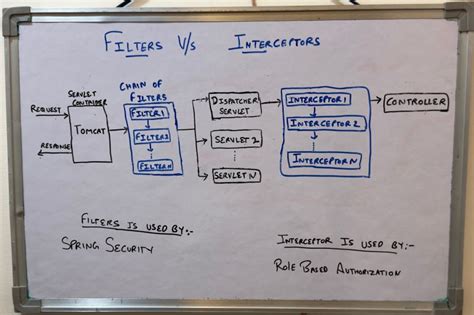 FILTERS V/s INTERCEPTORS
SERVLET CONTAINER
REQUEST
TOMCAT
RESPONSE
CHAIN OF FILTERS
FILTER 1
FILTER 2
FILTER N
DISPATCHER SERVLET
SERVLET 2
SERVLET N
INTERCEPTOR 1
INTERCEPTOR 2
INTERCEPTOR N
CONTROLLER
FILTERS IS USED BY:-
SPRING SECURITY
INTERCEPTOR IS USED BY:-
ROLE BASED AUTHORIZATION